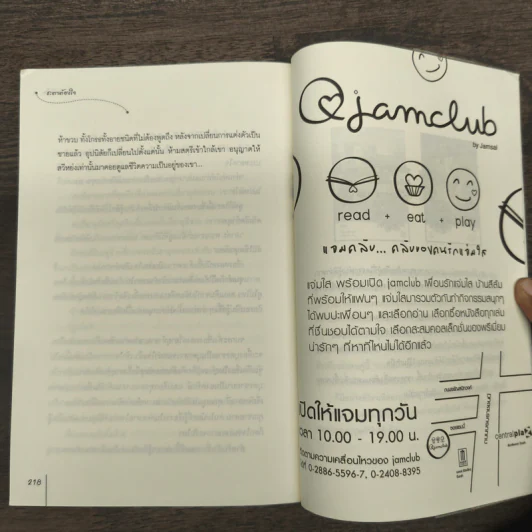 ห้าขวบ ทั้งโกรธทั้งอายชนิดที่ไม่ต้องพูดถึง หลังจากเปลี่ยนการแต่งตัวเป็น
ชายแล้ว อุปนิสัยก็เปลี่ยนไปตั้งแต่นั้น ห้ามสตรีเข้าใกล้เขา อนุญาตให้
218
@jamclub
by Jamsai
read + eat + play
แจมคลับ... คลับของคนรักแจ่มใส
แจ่มใส พร้อมเปิด jamclub เพื่อนรักแจ่มใส บ้านสีส้ม
ที่พร้อมให้แฟนๆ แจ่มใสมารวมตัวกันทำกิจกรรมสนุกๆ
ได้พบปะเพื่อนๆ และเลือกอ่าน เลือกซื้อหนังสือทุกเล่ม
ที่ชื่นชอบได้ตามใจ เลือกสะสมคอลเล็กชั่นของพรีเมียม
น่ารักๆ ที่หาที่ไหนไม่ได้อีกแล้ว
เปิดให้แจมทุกวัน
เวลา 10.00 - 19.00 น.
ติดตามความเคลื่อนไหวของ jamclub
0-2886-5596-7, 0-2408-8395